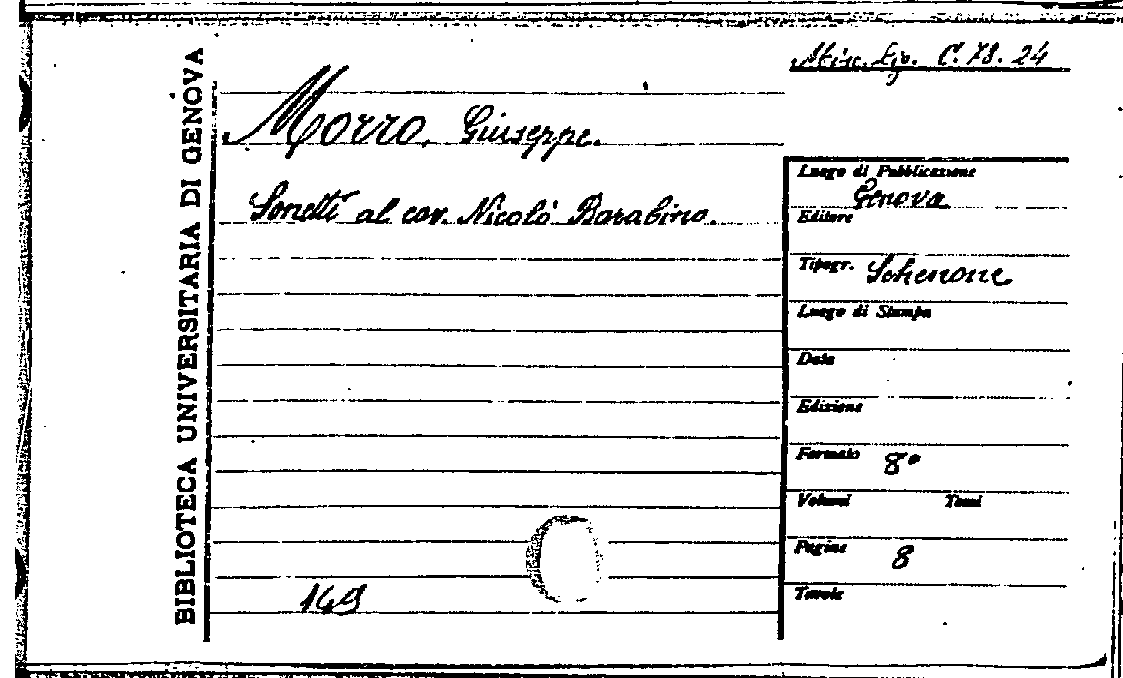 BIBLIOTECA UNIVERSITARIA DI GENOVA
Misc. Lig. C. 78. 24
Morro, Giuseppe.
Sonetti al cav. Nicolò Barabino.
Luogo di Pubblicazione
Genova
Editore
Tipogr. Schenone
Luogo di Stampa
Data
Edizione
Formato 8º
Volumi Tomi
Pagine 8
Tavole
149